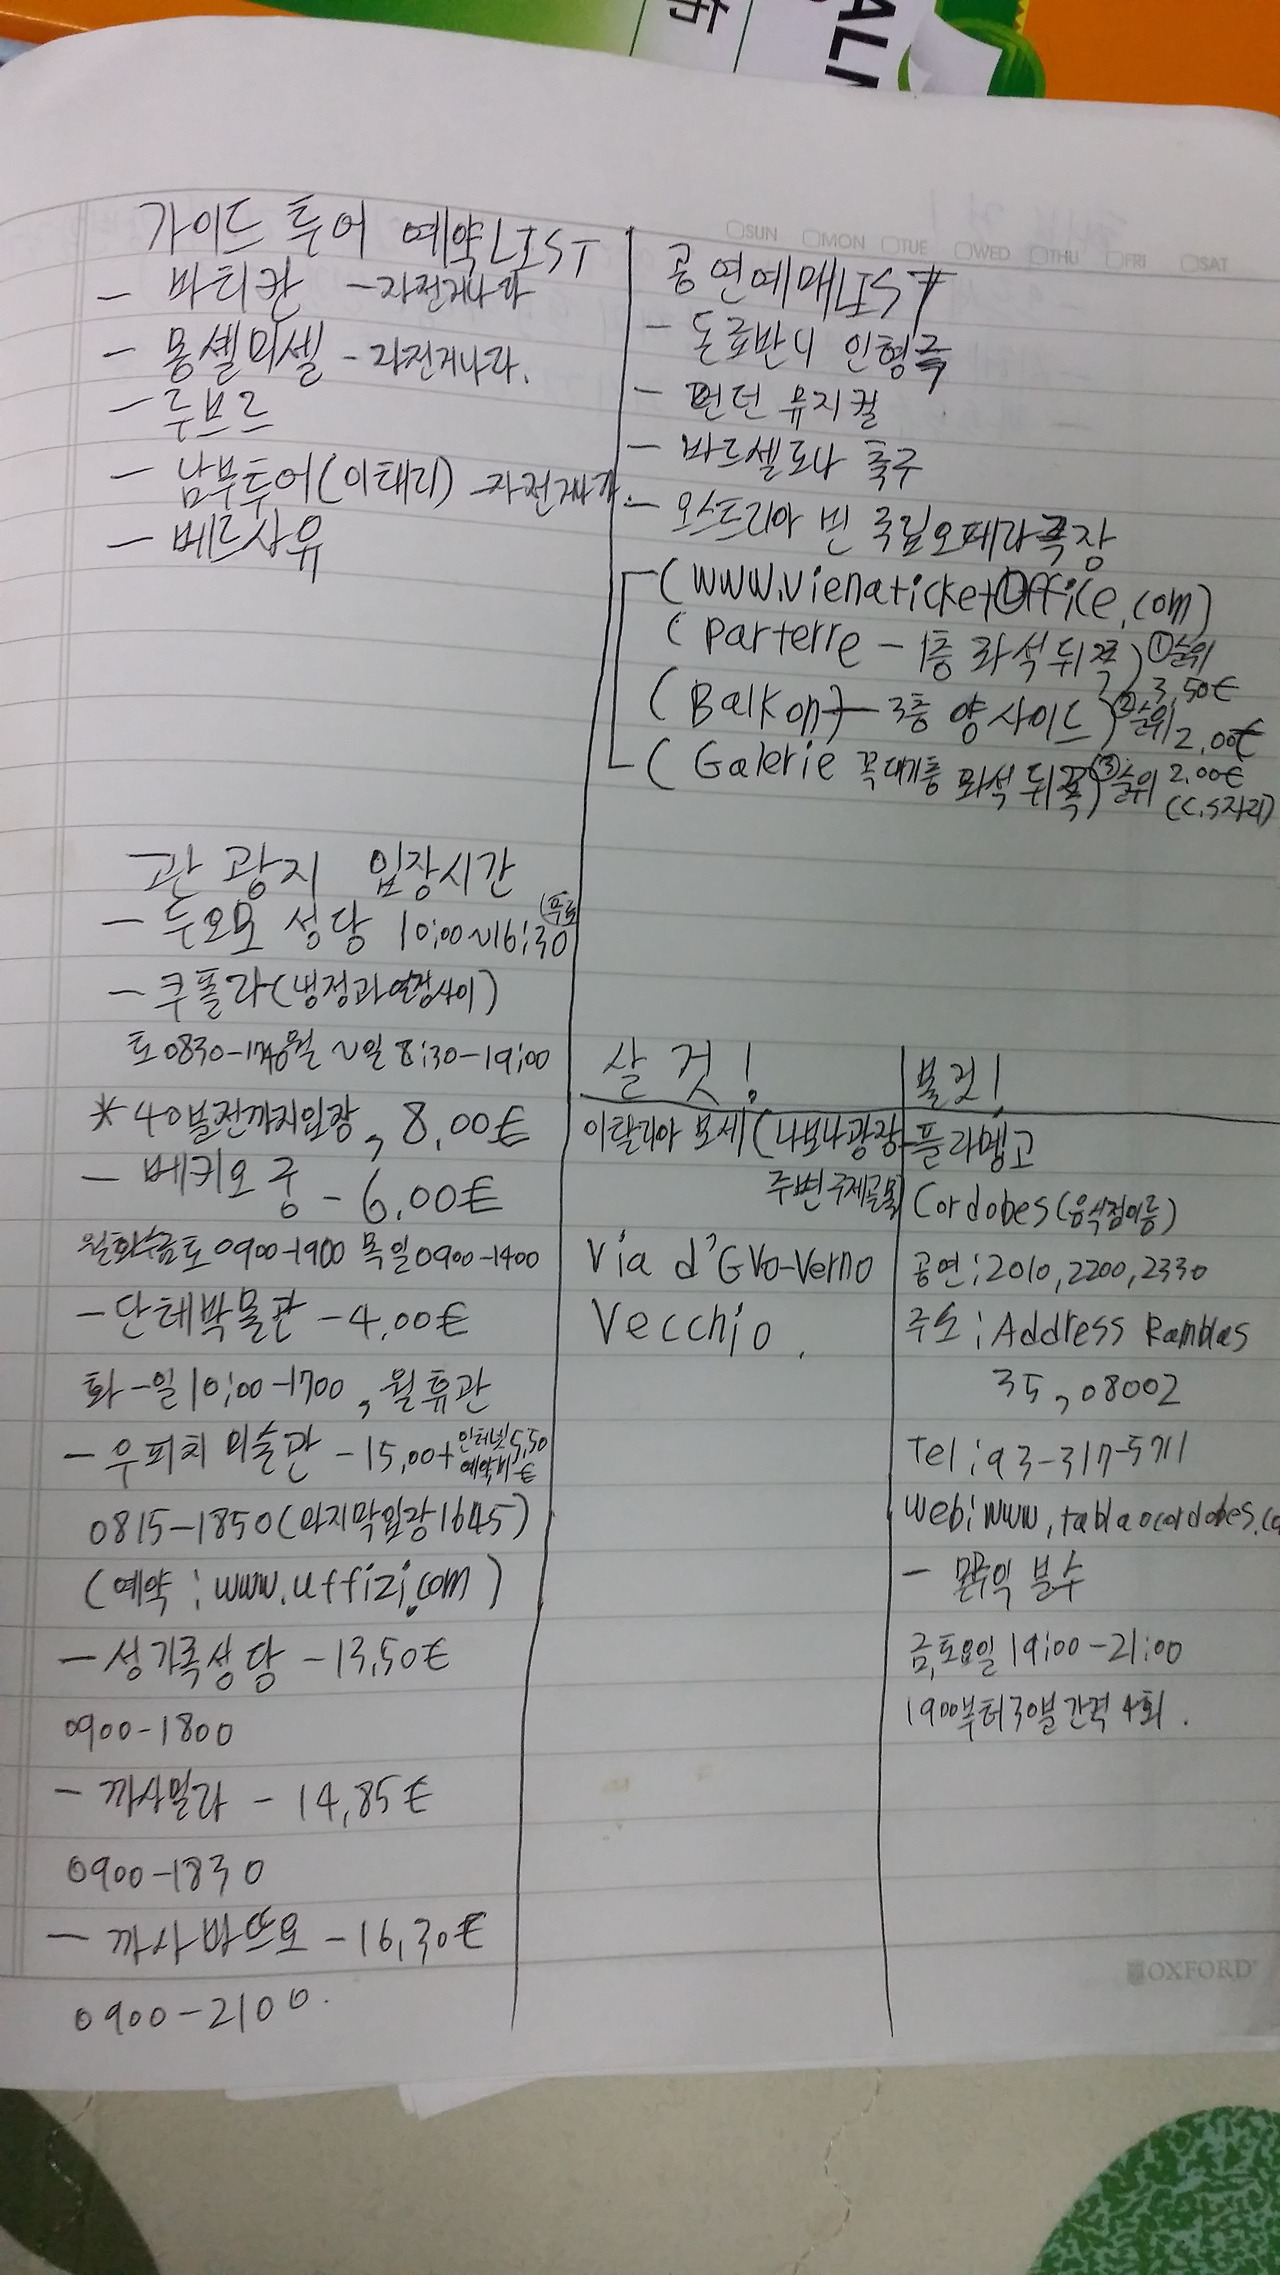 ALI
SUN MON TUE WED THU FRI SAT
가이드 투어 예약LIST
- 바티칸 - 자전거나라
- 몽셀미셀 - 자전거나라.
- 루브르
- 남부투어(이태리) - 자전거나라
- 베르사유
공연예매LIST
- 돈죠반니 인형극
- 런던 뮤지컬
- 바르셀로나 축구
- 오스트리아 빈 국립오페라극장
(www.vienaticketOffice.com)
(Parterre - 1층 좌석 뒤쪽) ①순위 3,50€
(Balkon) - 3층 양 사이드) ②순위 2,00€
(Galerie 꼭대기층 좌석 뒤쪽) ③순위 2.00€
(C.S자리)
관광지 입장시간
- 두오모 성당 10:00~16:30 (무료)
- 쿠폴라(냉정과열정사이)
토0830-1740 월~일 8:30-19:00
* 40분전까지입장, 8,00€
- 베키오 궁 - 6,00€
월화수금토 0900-1900 목일 0900-1400
- 단테박물관 - 4,00€
화-일 10:00-1700, 월휴관
- 우피치 미술관 - 15,00+ 인터넷 5,50
예약비 €
0815-1850(마지막입장 1645)
(예약 : www.uffizi.com)
- 성가족성당 - 13,50€
0900-1800
- 까사밀라 - 14,85€
0900-1830
- 까사 바뜨요 - 16,30€
0900-2100.
살 것!
이탈리아 모세(나보나광장
주변 구제골목
Via d'GVo-Verno
Vecchio.
볼것!
- 플라멩고
Cordobes(음식점이름)
공연:2010,2200,2330
주소:Address Ramblas
35,08002
Tel:93-317-5711
web:www.tablaocordobes.co
- 몬주익 분수
금,토요일 19:00-21:00
1900부터 30분간격 4회.
OXFORD